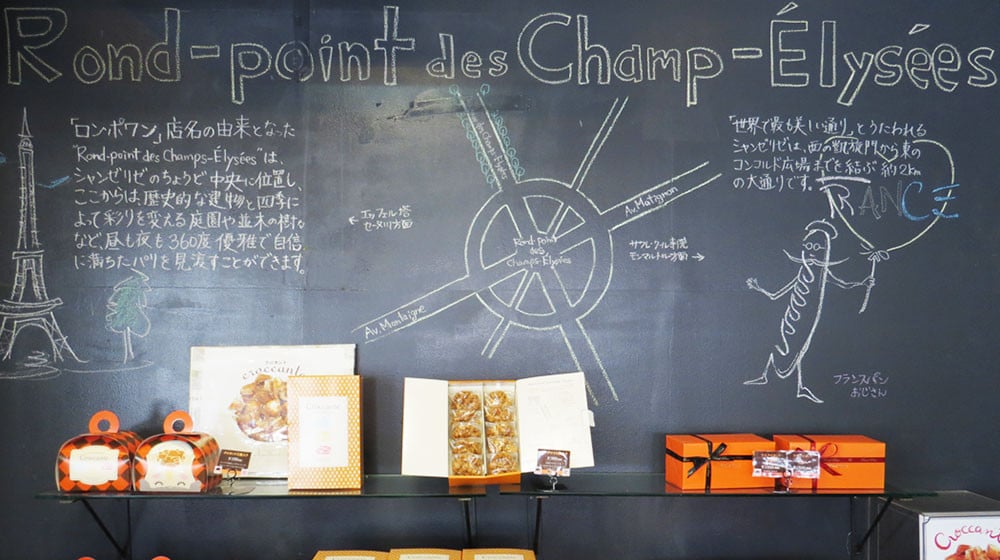 Rond-point des Champ-Élysées
「ロン・ポワン」店名の由来となった
"Rond-point des Champs-Élysées"は、
シャンゼリゼのちょうど中央に位置し、
ここからは、歴史的な建物と四季に
よって彩りを変える庭園や並木の樹々
など、昼も夜も360度優雅で自信
に満ちたパリを見渡すことができます。
「世界で最も美しい通り」とうたわれる
シャンゼリゼは、西の凱旋門から東の
コンコルド広場までを結ぶ約2km
の大通りです。
FRANCE
← エッフェル塔
セーヌ川方面
Av. Matignon
Rond-point
des
Champs-Élysées
サクレ・クール寺院
モンマルトル方面 →
Av. Montaigne
フランスパン
おじさん
Croccante
Croccante
Croccante
Croccante